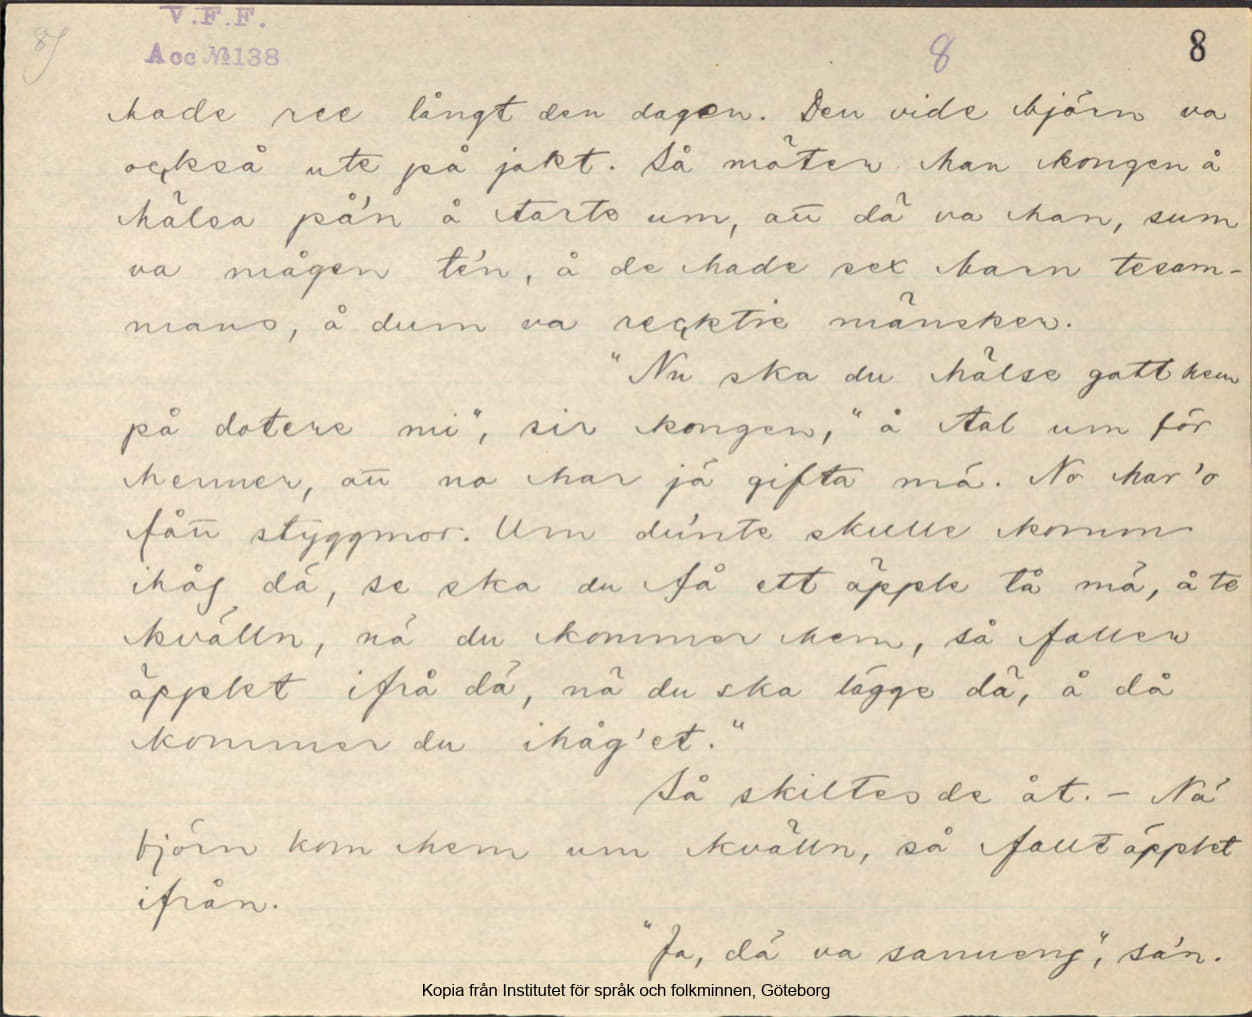 8/
V.F.F.
Acc №138
8
8
hade ree långt den dagen. Den vide björn va
också ute på jakt. Så möter han kongen å
hälsa på'n å tarte um, att dä va han, sum
va mågen te'n, å de hade sex barn tesam-
mans, å dum va recktie mänsker.
"Nu ska du hälse gatt hem
på dotere mi", sir kongen, "å tal um för
henner, att no har jä gifta mä. No har'o
fått styggmor. Um du'nte skulle komm
ihåg dä, se ska du få ett äpple tå mä, å te
kvälln, nä du kommer hem, så faller
äpplet ifrå dä, nä du ska lägge dä, å då
kommer du ihåg'et."
Så skiltes de åt. – Nä
björn kom hem um kvälln, så fallt äpplet
ifrån.
"Ja, dä va sanneng", sa'n.
Kopia från Institutet för språk och folkminnen, Göteborg